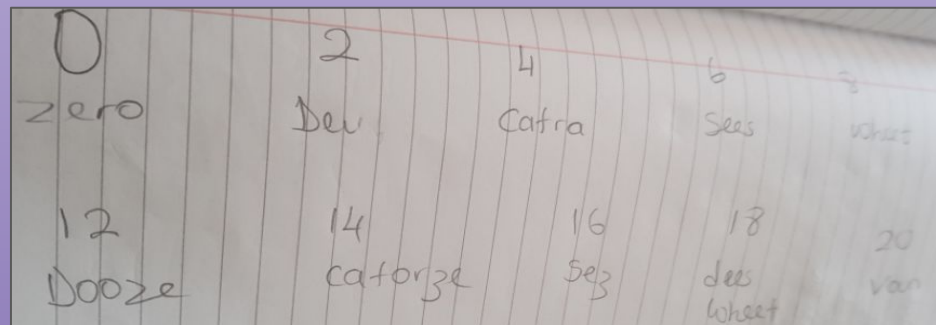 0 2 4 6 8
zero Deu Catra Sees wheet
12 14 16 18 20
Dooze catorze Sez dees van
wheet